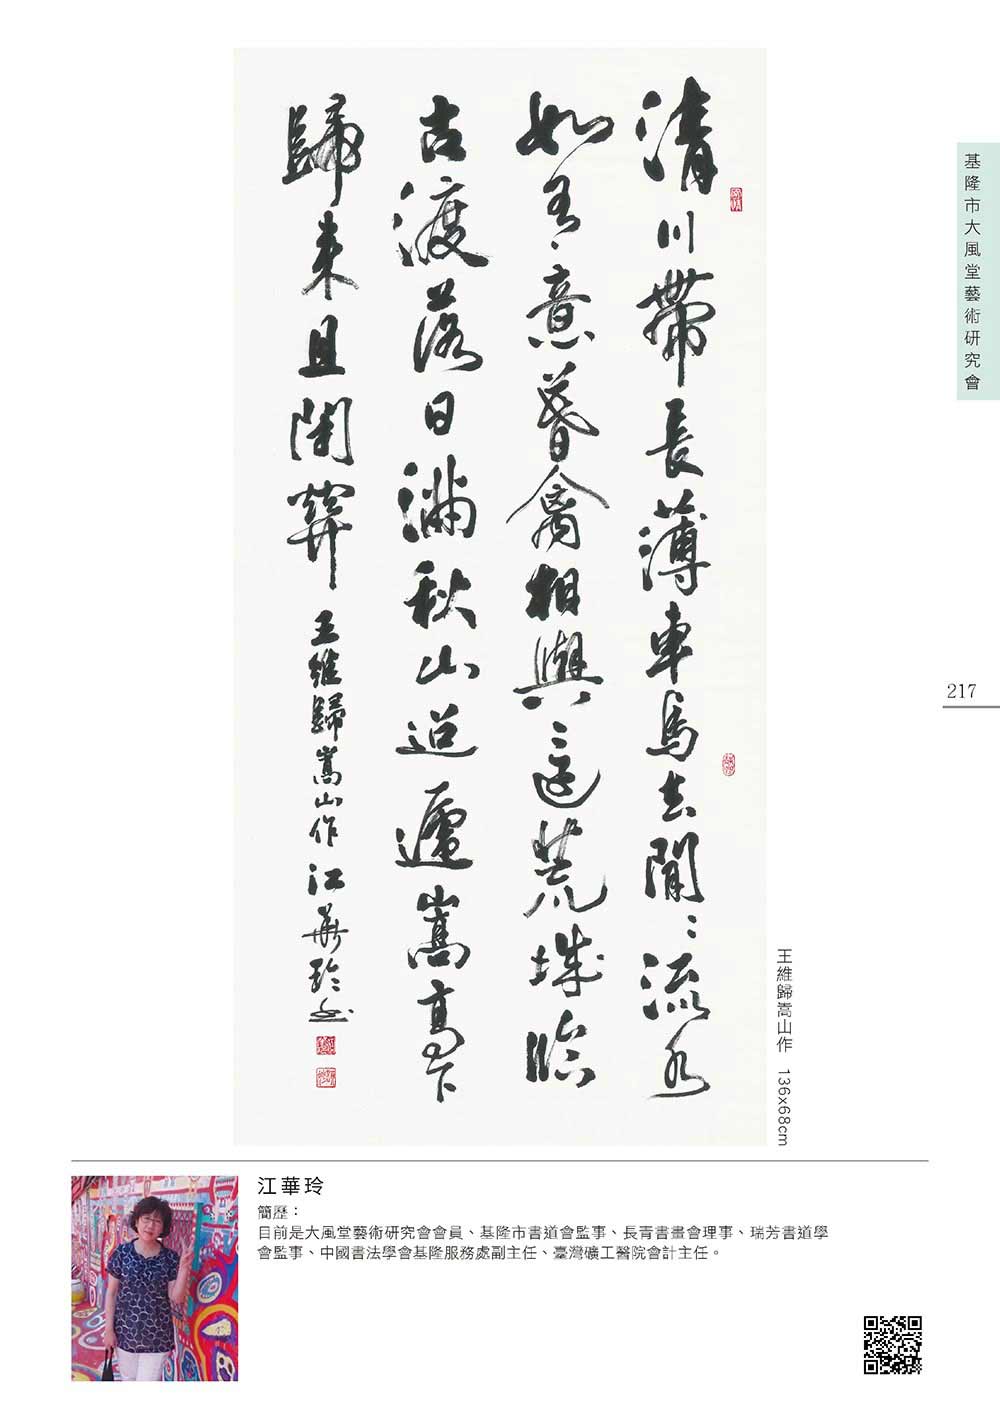 清川帶長薄車馬去閒〻流水
如有意暮禽相與還荒城臨
古渡落日滿秋山迢遞嵩高下
歸來且閉關 王維歸嵩山作 江華玲書
基隆市大風堂藝術研究會
217
王維歸嵩山作 136x68cm
江華玲
簡歷：
目前是大風堂藝術研究會會員、基隆市書道會監事、長青書畫會理事、瑞芳書道學
會監事、中國書法學會基隆服務處副主任、臺灣礦工醫院會計主任。